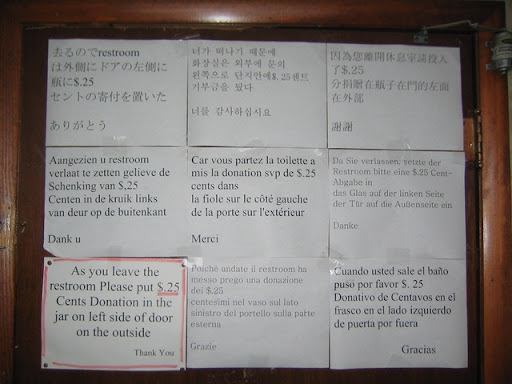 去るのでrestroom
は外側にドアの左側に
瓶に$.25
セントの寄付を置いた
ありがとう
너가 떠나기 때문에
화장실은 외부에 문의
왼쪽으로 단지안에$.25센트
기부금을 뒀다
너를 감사하십시요
因為您離開休息室請投入
了$.25
分捐贈在瓶子在門的左面
在外部
謝謝
Aangezien u restroom
verlaat te zetten gelieve de
Schenking van $,25
Centen in de kruik links
van deur op de buitenkant
Dank u
Car vous partez la toilette a
mis la donation svp de $.25
cents dans
la fiole sur le côté gauche
de la porte sur l'extérieur
Merci
Da Sie verlassen, setzte der
Restroom bitte eine $.25 Cent-
Abgabe in
das Glas auf der linken Seite
der Tür auf die Außenseite ein
Danke
As you leave the
restroom Please put $.25
Cents Donation in the
jar on left side of door
on the outside
Thank You
Poichè andate il restroom ha
messo prego una donazione
dei $.25
centesimi nel vaso sul lato
sinistro del portello sulla parte
esterna
Grazie
Cuando usted sale el baño
puso por favor $. 25
Donativo de Centavos en el
frasco en el lado izquierdo
de puerta por fuera
Gracias